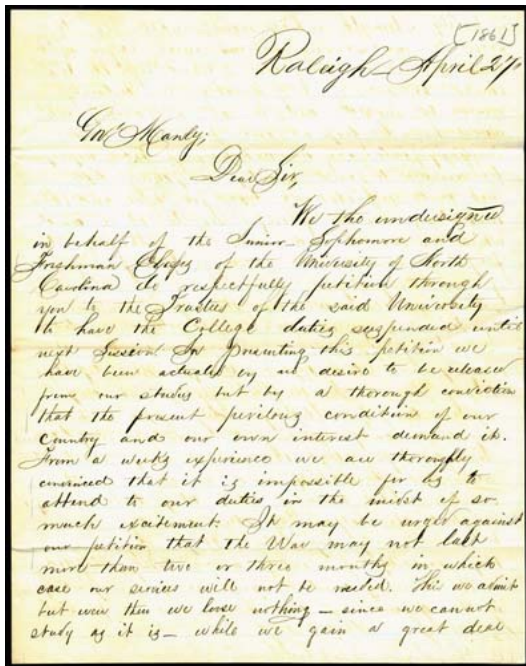 [1861]
Raleigh April 27th
Gov Manly;
Dear Sir,
We the undersigned
in behalf of the Junior Sophomore and
Freshman Classes of the University of North
Carolina do respectfully petition through
you to the Trustees of the said University
to have the College duties suspended until
next Session In presenting this petition we
have been actuated by no desire to be released
from our studies but by a thorough conviction
that the present perilous condition of our
Country and our own interest demand it.
From a weeks experience we are thoroughly
convinced that it is impossible for us to
attend to our duties in the midst of so
much excitement. It may be urged against
our petition that the War may not last
more than two or three months in which
case our services will not be needed. This we admit
but even then we loose nothing — since we cannot
study as it is — while we gain a great deal